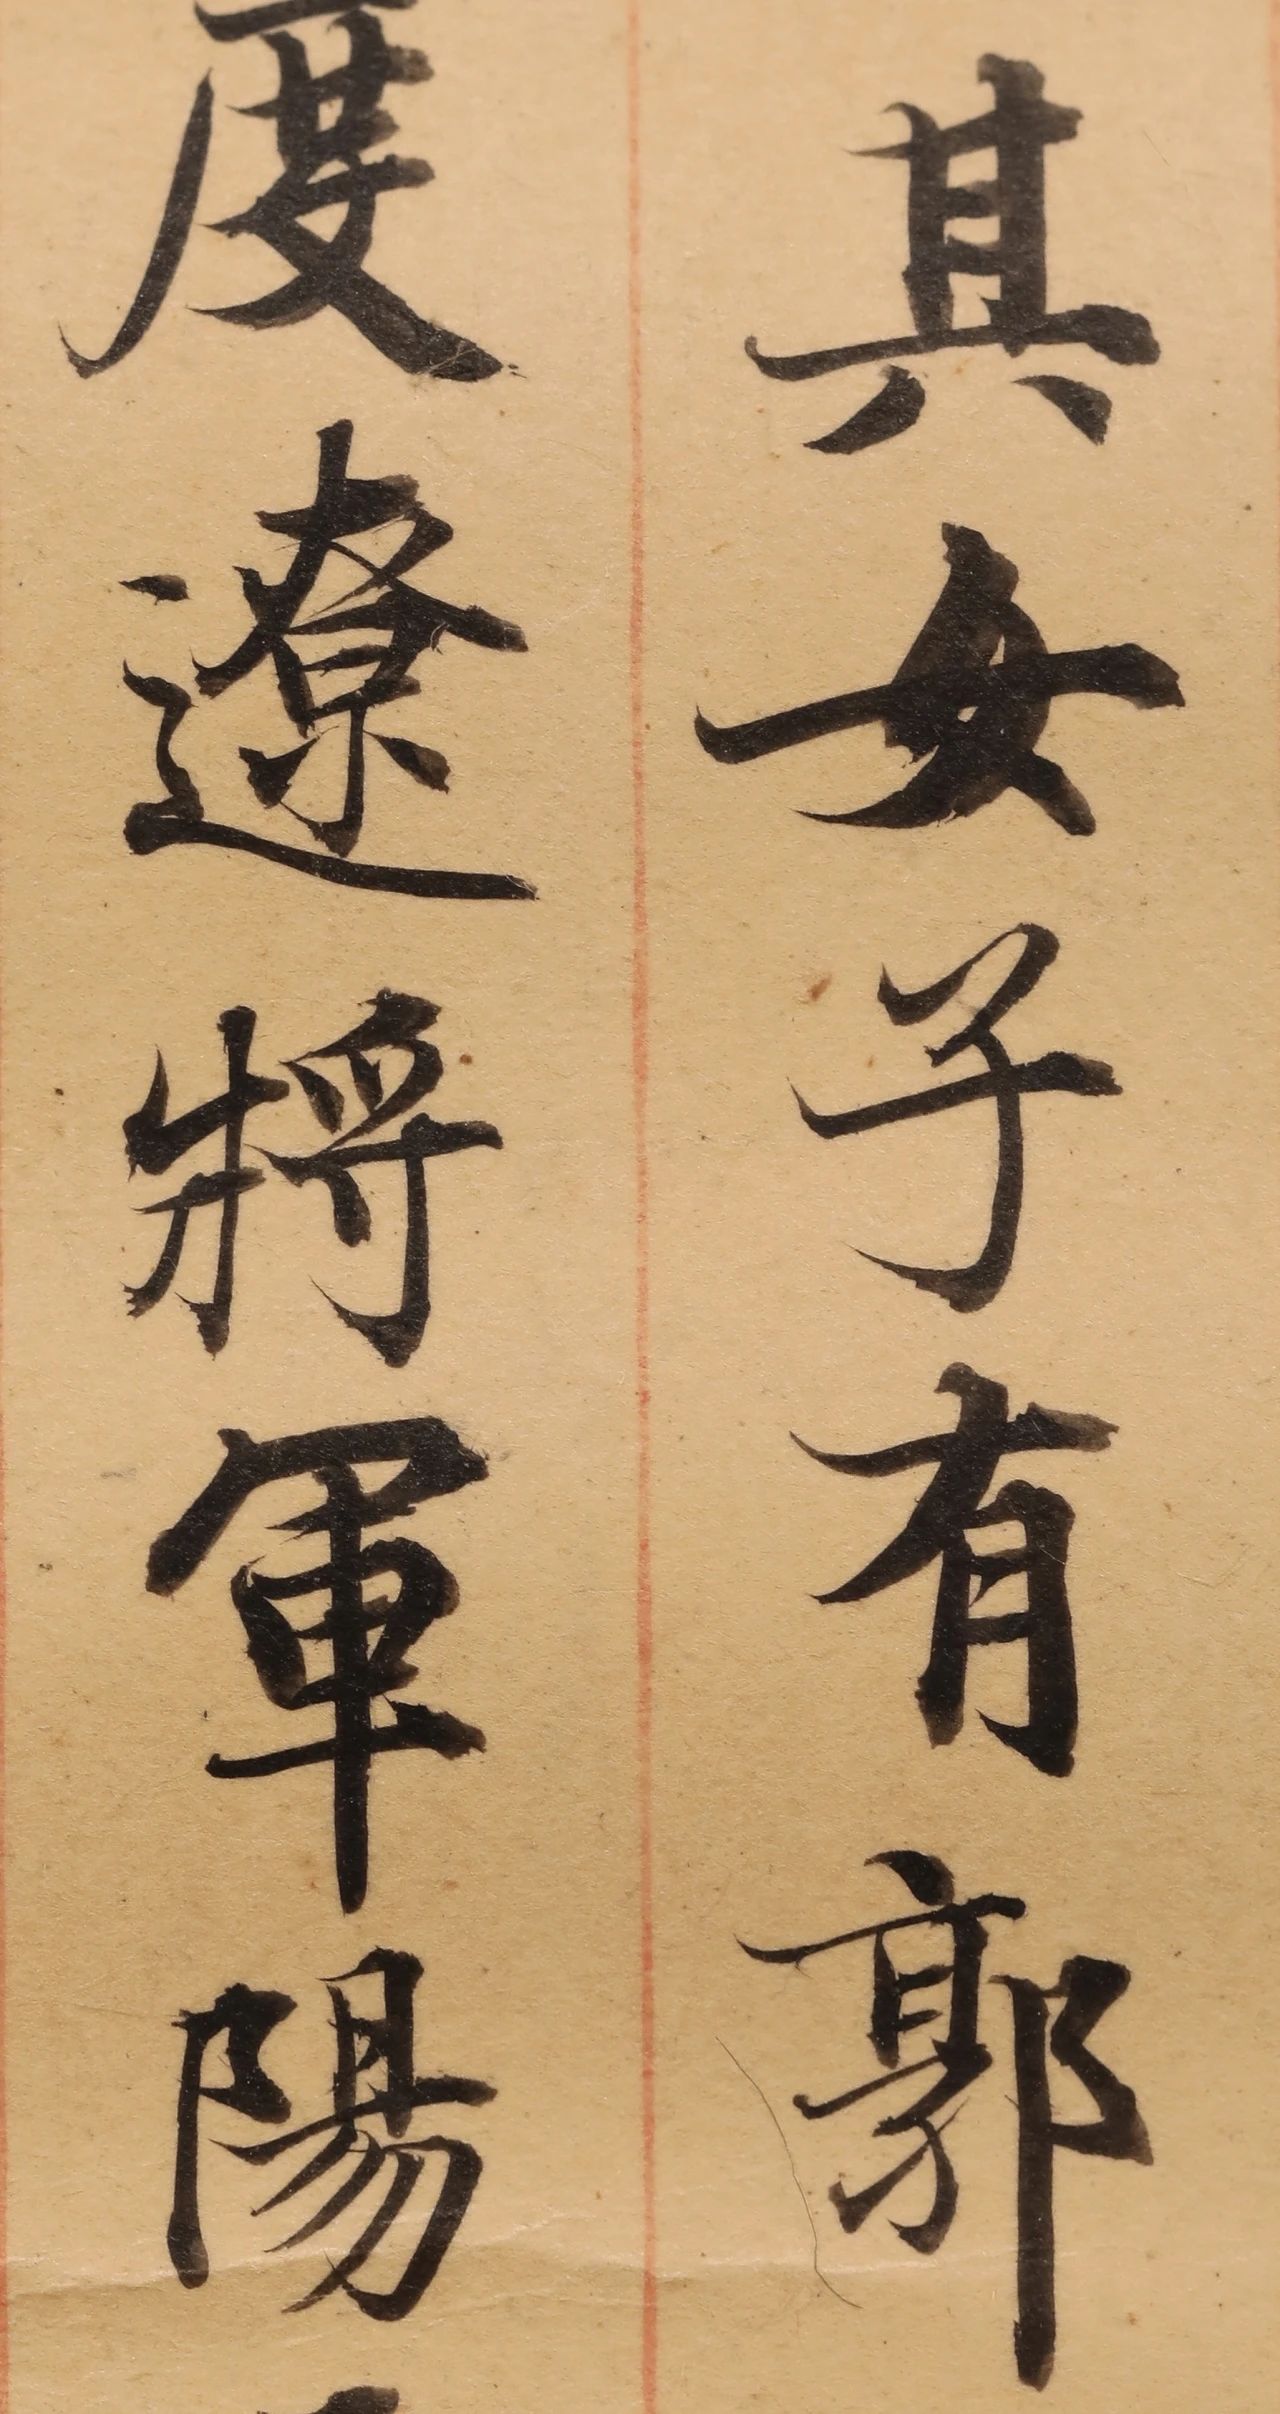 其女子有郭
度遼將軍陽